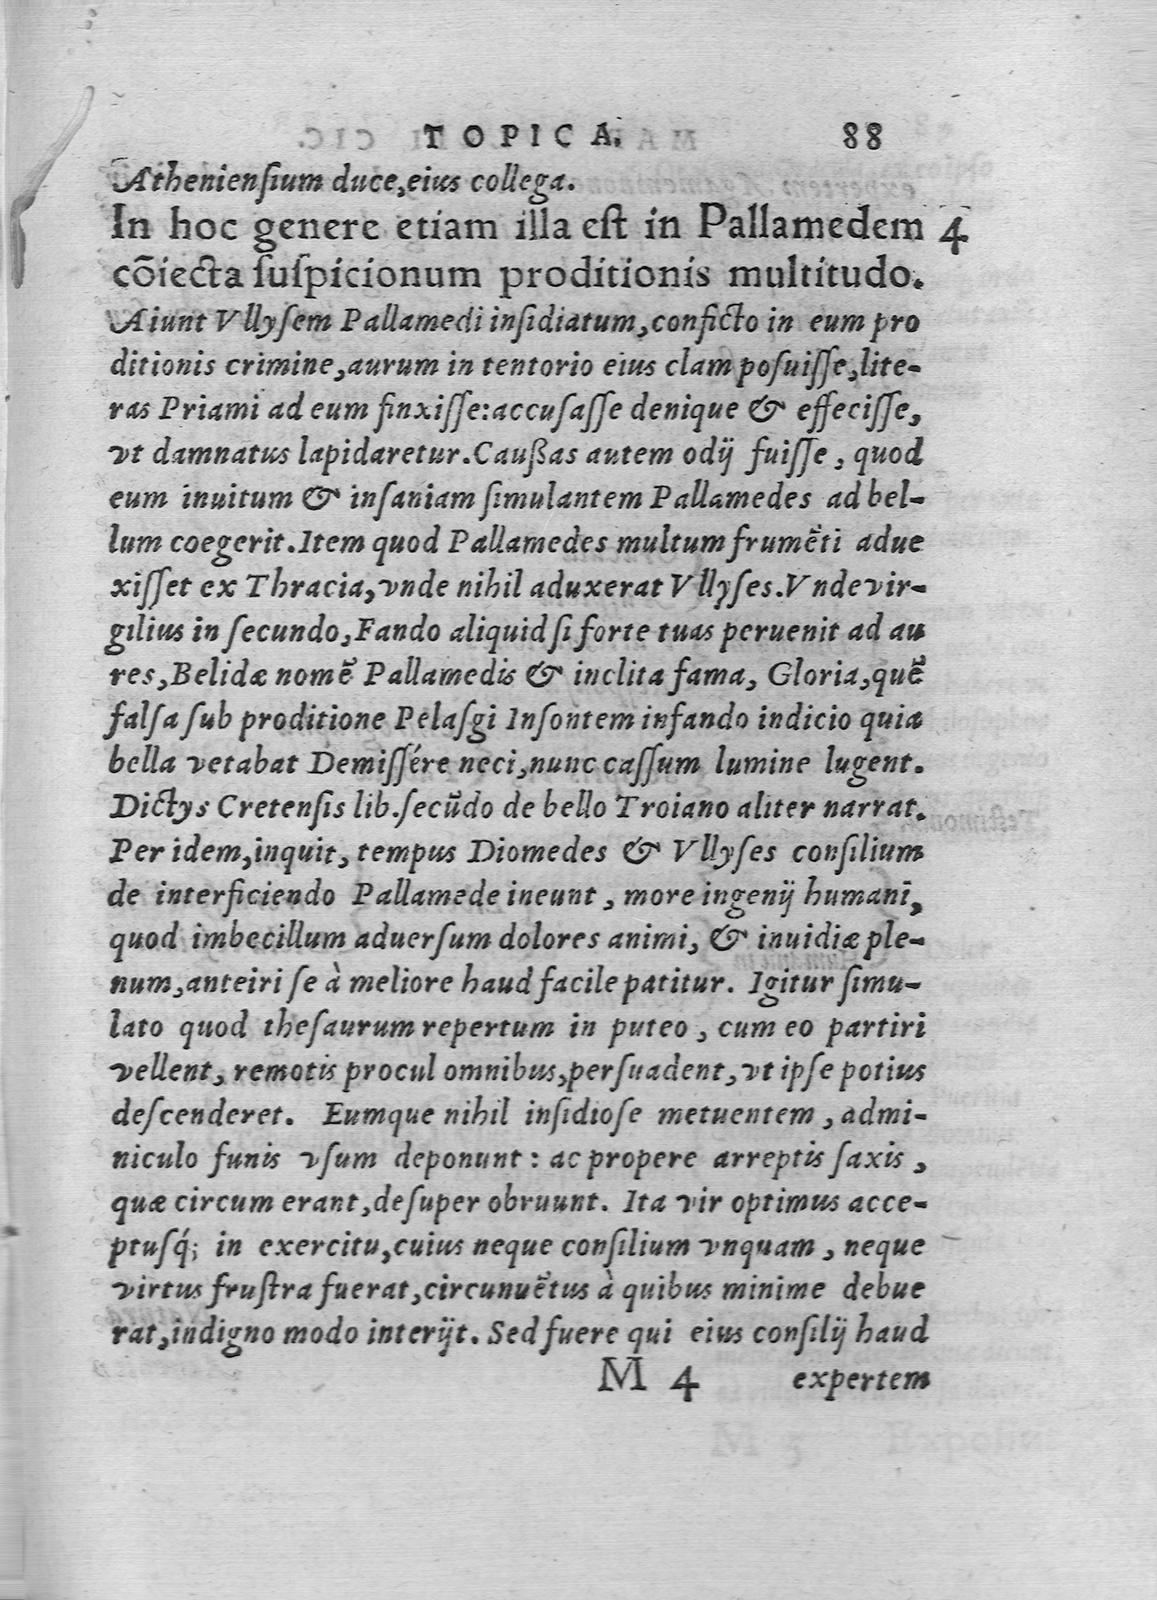 TOPICA. 88
Atheniensium duce, eius collega.
In hoc genere etiam illa est in Pallamedem 4
cōiecta suspicionum proditionis multitudo.
Aiunt Vllysem Pallamedi insidiatum, conficto in eum pro
ditionis crimine, aurum in tentorio eius clam posuisse, lite-
ras Priami ad eum finxisse: accusasse denique & effecisse,
vt damnatus lapidaretur. Caußas autem odij fuisse, quod
eum inuitum & insaniam simulantem Pallamedes ad bel-
lum coegerit. Item quod Pallamedes multum frumēti adue
xisset ex Thracia, vnde nihil aduxerat Vllyses. Vnde vir-
gilius in secundo, Fando aliquid si forte tuas peruenit ad au
res, Belidæ nomē Pallamedis & inclita fama, Gloria, quē
falsa sub proditione Pelasgi Insontem infando indicio quia
bella vetabat Demissére neci, nunc cassum lumine lugent.
Dictys Cretensis lib. secūdo de bello Troiano aliter narrat.
Per idem, inquit, tempus Diomedes & Vllyses consilium
de interficiendo Pallamede ineunt, more ingenij humani,
quod imbecillum aduersum dolores animi, & inuidiæ ple-
num, anteiri se à meliore haud facile patitur. Igitur simu-
lato quod thesaurum repertum in puteo, cum eo partiri
vellent, remotis procul omnibus, persuadent, vt ipse potius
descenderet. Eumque nihil insidiose metuentem, admi-
niculo funis vsum deponunt: ac propere arreptis saxis,
quæ circum erant, desuper obruunt. Ita vir optimus acce-
ptusq́; in exercitu, cuius neque consilium vnquam, neque
virtus frustra fuerat, circunuētus à quibus minime debue
rat, indigno modo interijt. Sed fuere qui eius consilij haud
M 4 expertem